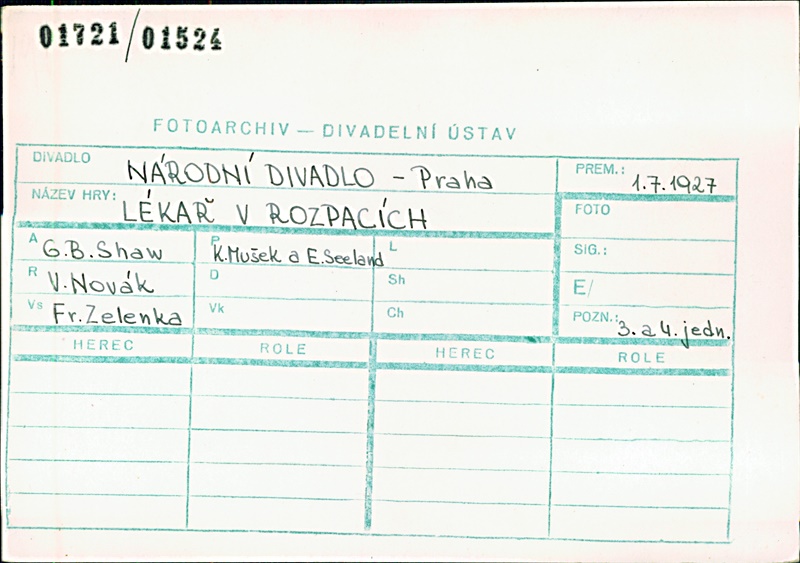 01721/01524
FOTOARCHIV — DIVADELNÍ ÚSTAV
DIVADLO NÁRODNÍ DIVADLO - Praha
PREM.: 1.7.1927
NÁZEV HRY: LÉKAŘ V ROZPACÍCH
FOTO
A G.B.Shaw
P K.Mušek a E.Seeland
L
SIG.:
R V.Novák
D
Sh
E/
Vs Fr.Zelenka
Vk
Ch
POZN.: 3. a 4. jedn.
HEREC ROLE HEREC ROLE